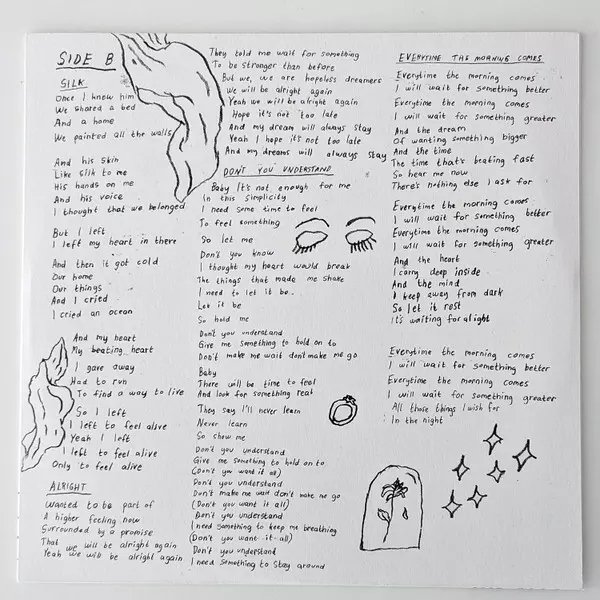 SIDE B
SILK
Once I knew him
We shared a bed
And a home
We painted all the walls
And his skin
Like silk to me
His hands on me
And his voice
I thought that we belonged
But I left
I left my heart in there
And then it got cold
Our home
Our things
And I cried
I cried an ocean
And my heart
My beating heart
I gave away
Had to run
To find a way to live
So I left
I left to feel alive
Yeah I left
I left to feel alive
Only to feel alive
ALRIGHT
Wanted to be part of
A higher feeling now
Surrounded by a promise
That we will be alright again
Yeah we will be alright again
They told me wait for something
To be stranger than before
But we, we are hopeless dreamers
We will be alright again
Yeah we will be alright again
Hope it's not too late
And my dream will always stay
Yeah I hope it's not too late
And my dreams will always stay
DON'T YOU UNDERSTAND
Baby It's not enough for me
In this simplicity
I need some time to feel
To feel something
So let me
Don't you know
I thought my heart would break
The things that made me shake
I need to let it be..
Let it be
So hold me
Don't you understand
Give me something to hold on to
Don't make me wait don't make me go
Baby
There will be time to feel
And look for something real
They say I'll never learn
Never learn
So show me
Don't you understand
Give me something to hold on to
(Don't you want it all)
Don't you understand
Don't make me wait don't make me go
(Don't you want it all)
Don't you understand
I need something to keep me breathing
(Don't you want it all)
Don't you understand
I need something to stay around
EVERYTIME THE MORNING COMES
Everytime the morning comes
I will wait for something better
Everytime the morning comes
I will wait for something greater
And the dream
Of wanting something bigger
And the time
The time that's beating fast
So hear me now
There's nothing else I ask for
Everytime the morning comes
I will wait for something better
Everytime the morning comes
I will wait for something greater
And the heart
I carry deep inside
And the mind
I keep away from dark
So let it rest
It's waiting for alight
Everytime the morning comes
I will wait for something better
Everytime the morning comes
I will wait for something greater
All those things I wish for
In the night